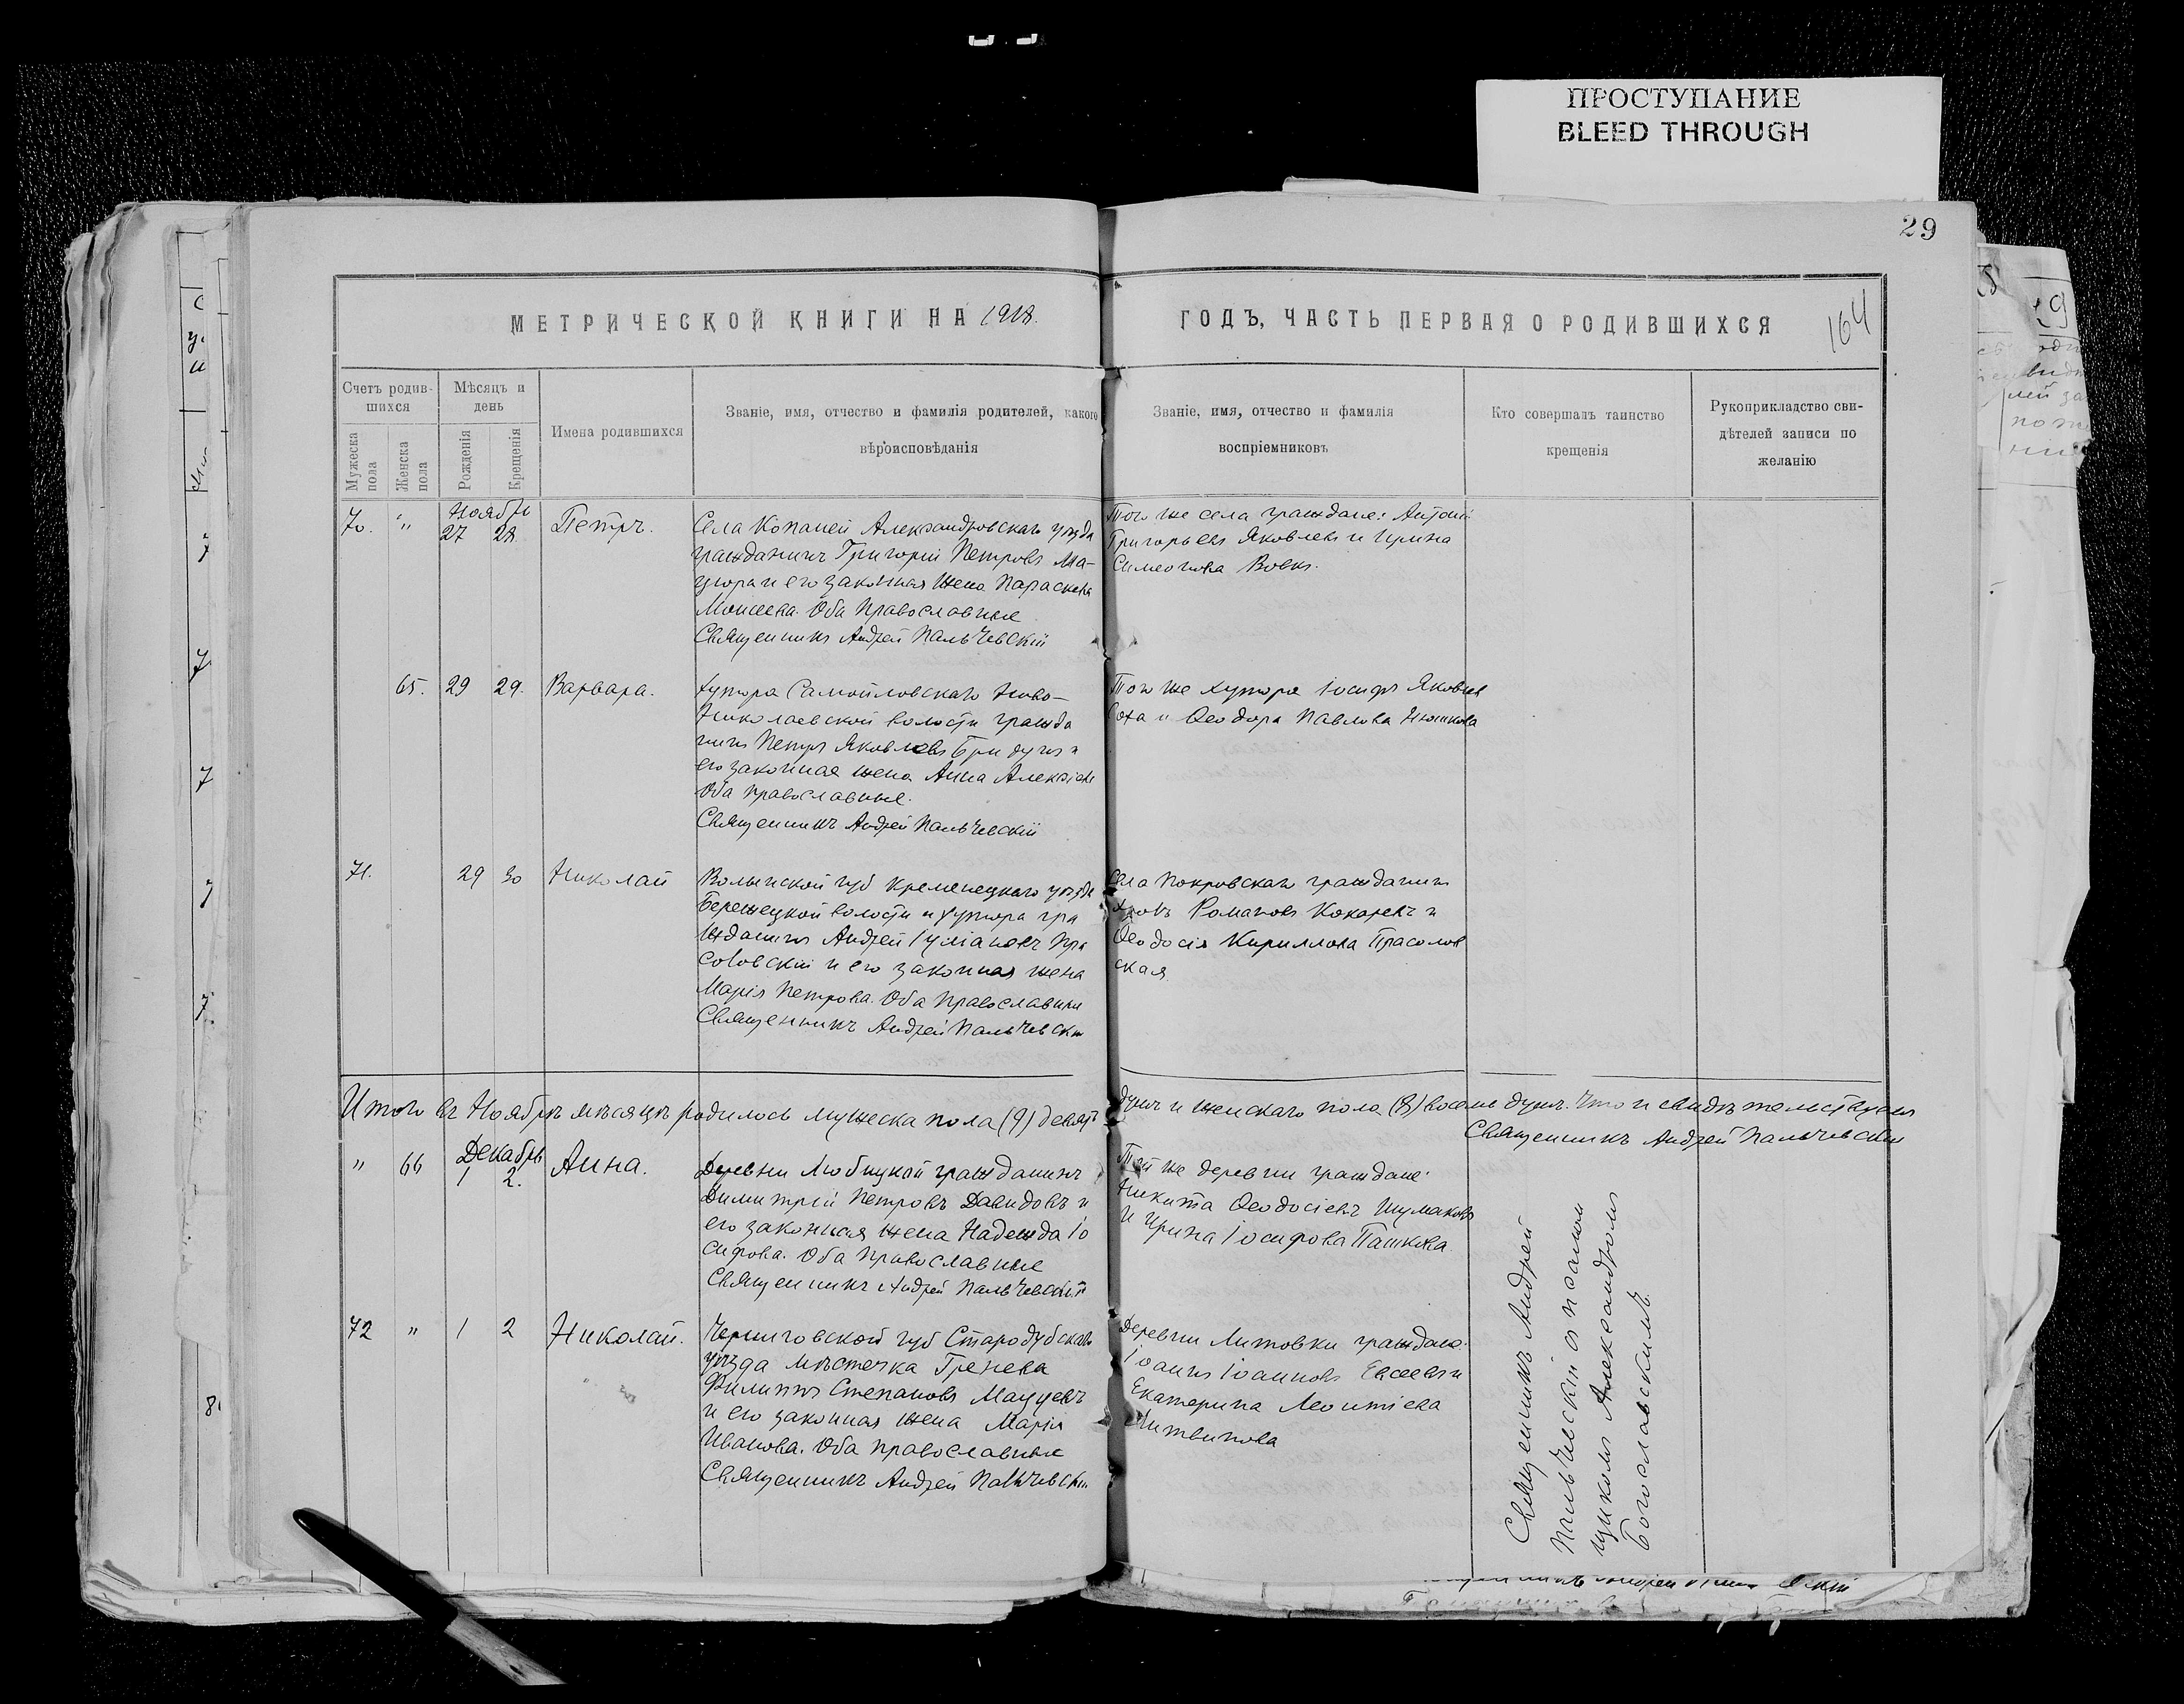 ПРОСТУПАНИЕ
BLEED THROUGH
29
МЕТРИЧЕСКОЙ КНИГИ НА 1918.
ГОДЪ, ЧАСТЬ ПЕРВАЯ О РОДИВШИХСЯ
164
Счетъ родив-
шихся
Мужеска
пола
Женска
пола
Мѣсяцъ и
день
Рожденія
Крещенія
Имена родившихся
Званіе, имя, отчество и фамилія родителей, какого
вѣроисповѣданія
Званіе, имя, отчество и фамилія
воспріемниковъ
Кто совершалъ таинство
крещенія
Рукоприкладство сви-
дѣтелей записи по
желанію
Ноября
70. " 27 28. Петръ.
Села Копаней Александровскаго уѣзда
гражданинъ Григорій Петровъ Ма-
цюра и его законная жена Параскева
Моисеева. Оба Православные
Священникъ Андрей Пальчевскій
Того же села граждане: Антоній
Григорьевъ Яковлевъ и Ирина
Симеонова Вовкъ.
65. 29 29. Варвара.
Хутора Самойловскаго Ново-
Николаевской волости гражда
нинъ Петръ Яковлевъ и
его законная жена Анна Алексіева
Оба православные.
Священникъ Андрей Пальчевскій
Того же хутора Іосифъ Яковлев
и Ѳеодора Павлова
71. 29 30 Николай
Волынской губ Кременецкаго уѣзда
Бережецкой волости и хутора гра
жданинъ Андрей Іуліановъ Пра
соловскій и его законная жена
Марія Петрова. Оба Православные
Священникъ Андрей Пальчевскій
Села Покровскаго гражданинъ
Романовъ Кокаревъ и
Ѳеодосія Кириллова Прасолов
ская
Итого въ Ноябрѣ мѣсяцѣ родилось мужеска пола (9) девять
душъ и женскаго пола (8) восемь душъ. Что и свидѣтельствуетъ
Священникъ Андрей Пальчевскій
Декабрь
" 66 1 2. Анна.
Деревни Любицкой гражданинъ
Димитрій Петровъ Давидовъ и
его законная жена Надежда Іо
сифова. Оба Православные
Священникъ Андрей Пальчевскій
Той же деревни граждане:
Никита Ѳеодосіевъ Шумаковъ
и Ирина Іосифова Пашкова
72 " 1 2 Николай.
Черниговской губ Стародубскаго
уѣзда мѣстечка Гренева
Филиппъ Степановъ Мацуевъ
и его законная жена Марія
Иванова. Оба православные
Священникъ Андрей Пальчевскій
Деревни Литовки граждане:
Іоаннъ Іоанновъ Евсеевъ и
Екатерина Леонтіева
Литвинова
Священникъ Андрей
Пальчевскій съ псаломщикомъ Александромъ
Богославскимъ.